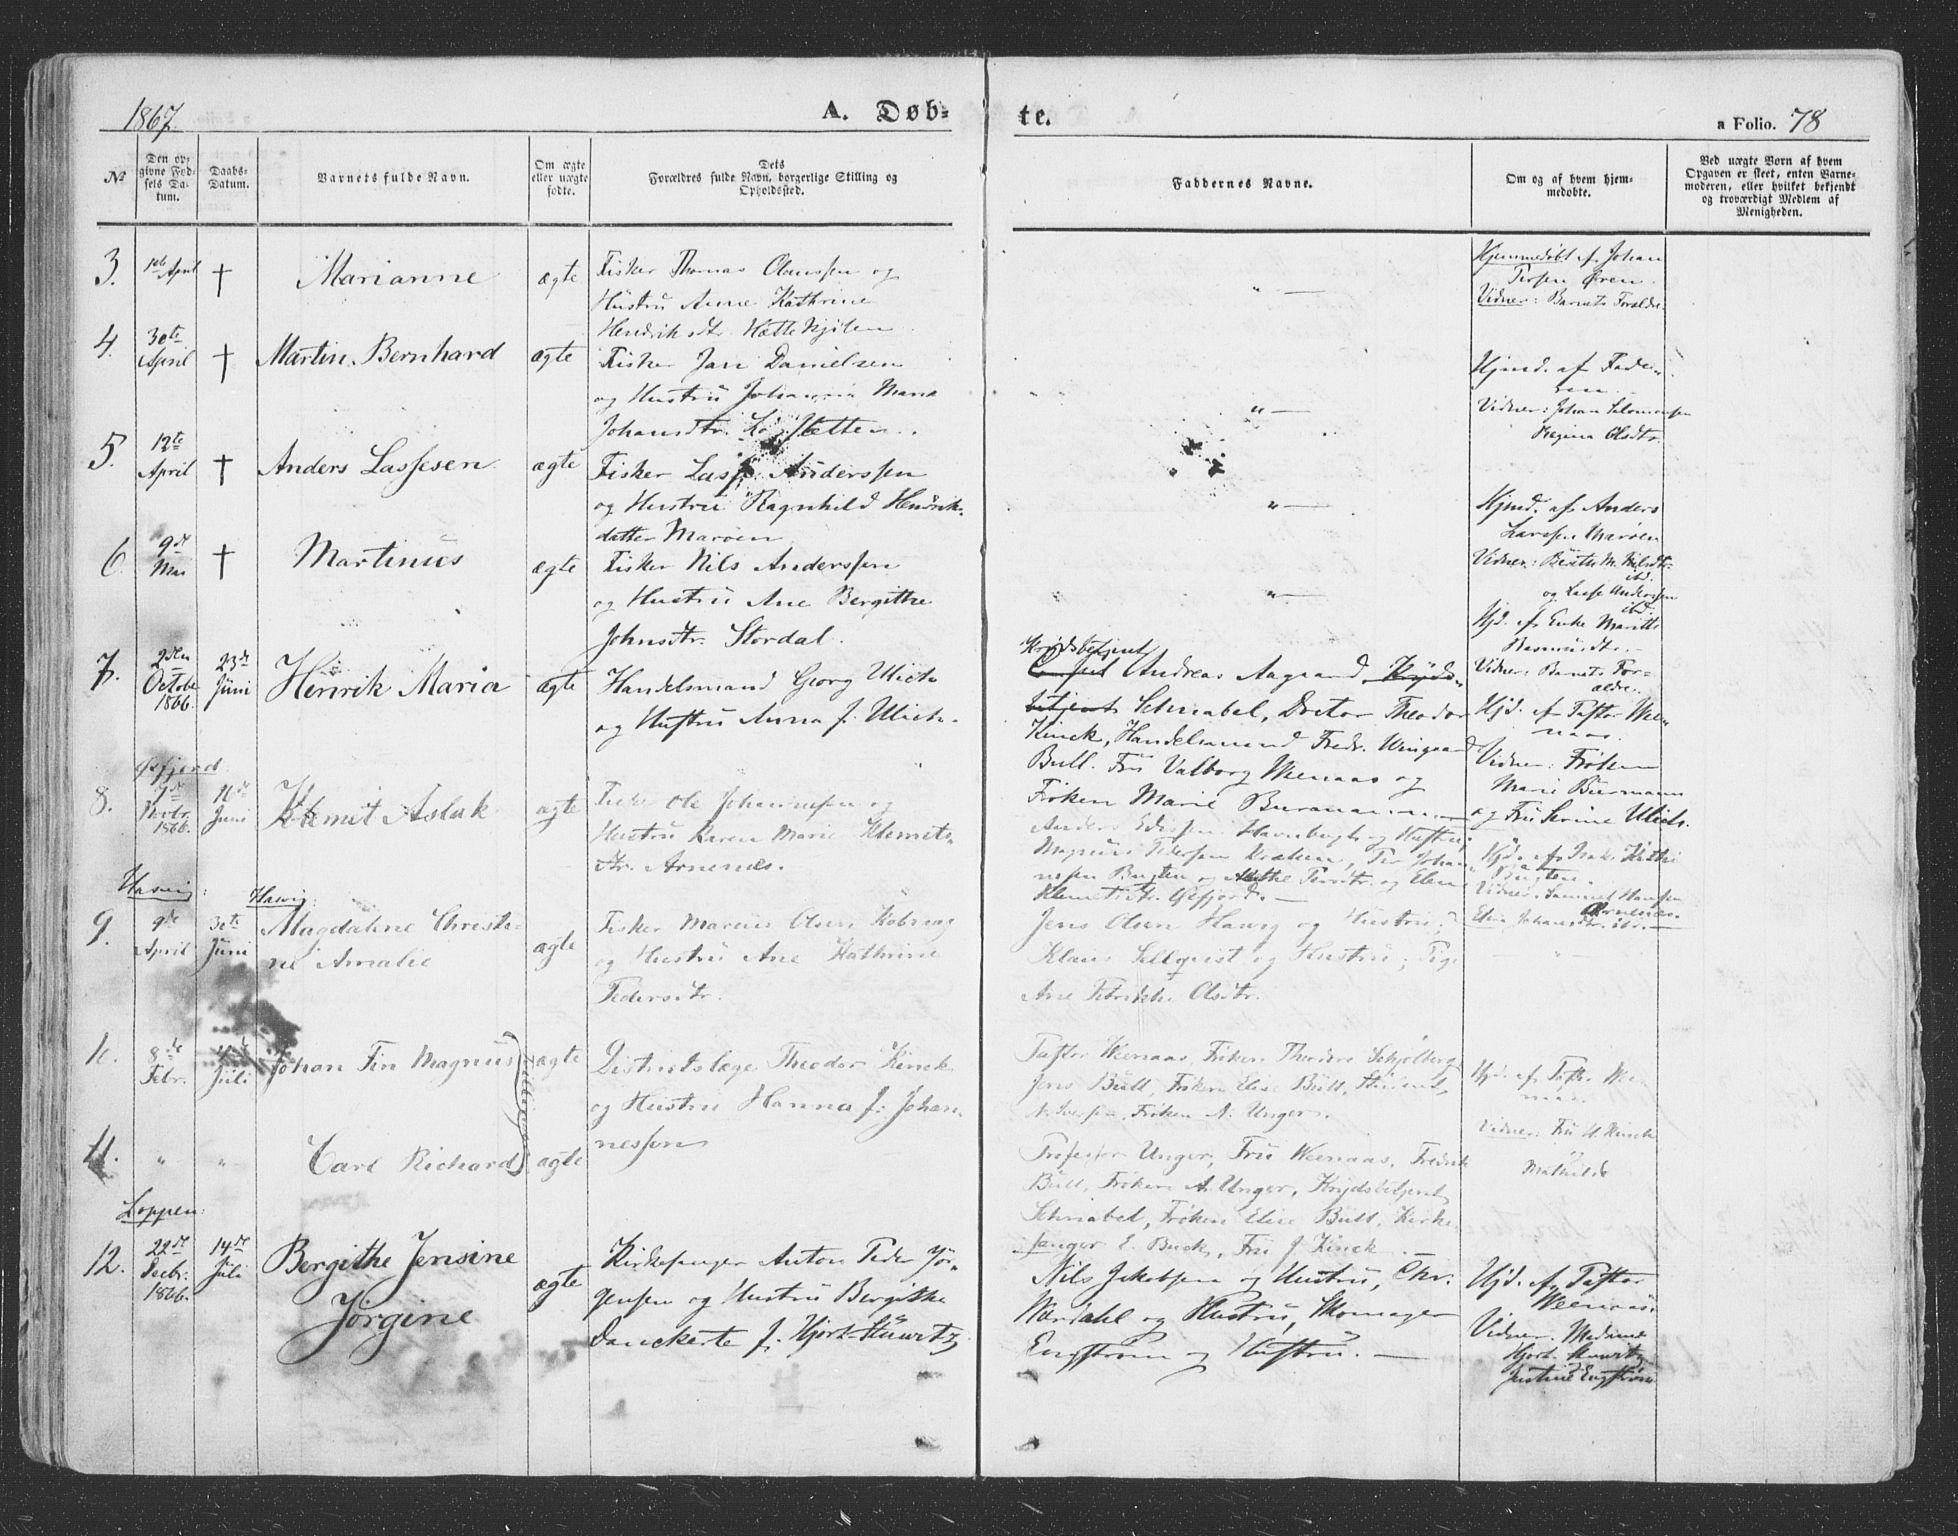 1867.
A. Døb-
te.
a Folio. 78
No
Den op-
givne Fød-
sels Da-
tum.
Daabs-
Datum.
Barnets fulde Navn.
Om ægte
eller uægte
fødte.
Dets
Forældres fulde Navn, borgerlige Stilling og
Opholdssted.
Faddernes Navne.
Om og af hvem hjem-
medøbte.
Ved uægte Born af hvem
Opgaven er skeet, enten Barne-
moderen, eller hvilket bekjendt
og troværdigt Medlem af
Menigheden.
3. April † Marianne ægte
Fisker Thomas Olaussen og
Hustru Anne Kathrine
Hendriksdtr.
Hjemmedøbt af Johan
Øren.
Vidner: Barnets Forældre
4. 30te April † Martin Bernhard ægte
Fisker Jan Danielsen
og Hustru Johanna Maria
Johansdtr.
Hjmd. af Fade-
ren
Vidner: Johan Salomonsen
Regina Olsdtr
5. 12te April † Anders Lassesen ægte
Fisker Lasse Anderssen
og Hustru Ragnhild Hendrik-
datter Marøen
Hjmd. af Anders
Larssen Marøen
Vidner: M. Nilsdtr.
ibd.
og Lasse Anderssen
ibd.
6. 9de Mai † Martinus ægte
Fisker Nils Anderssen
og Hustru Ane Bergithe
Johnsdtr. Stordal.
Hjd. af Enke Marith
Rasmusdtr.
Vidner: Barnets For-
ældre.
7. 2den October 1866. 23de Juni Henrik Maria ægte
Handelsmand Georg Ulich
og Hustru Anna f. Ulich.
Krydsbetjent
Andreas Aagaard, Kryds-
betjent Schnabel, Doctor Theodor
Kinck, Handelsmand Fredr. Wingaard
Bull. Fru Valborg Weenaas og
Frøken Marie Burmann
Hjd. af Pastor Wee-
naas.
Vidner: Frøken
Marie Burmann
og Fru Serine Ulich.
Øxfjord
8. 7de Novbr. 1866. 16de Juni Klemet Aslak ægte
Fisker Ole Johannessen og
Hustru Karen Marie Klemets-
dtr. Arnenes.
Anders og Hustru;
Magnus Pedersen Per Johan-
nesen Bugten og og Elen
Klemetsdtr. Øxfjord.
Hjd. af Isak
Bugten.
Vidner: Samuel Hansen
Arnenes.
Elen Johansdtr. ibd.
Hasvig:
Hasvig:
9. 9de April 30te Juni Magdalene Christia-
ne Amalie ægte
Fisker Marcus Olsen
og Hustru Ane Kathrine
Pedersdtr.
Jens Olsen Hasvig og Hustru;
Klaus Sellqvist og Hustru; Pige
Ane Olsdtr.
10. 8de Febr. Juli Johan Fin Magnus ægte
Tvillinger
Districtslæge Theodor Kinck
og Hustru Hanna f. Johan-
nessen
Pastor Weenaas, Frøken Theodora Schjølberg
Jens Bull, Frøken Elise Bull, Student
N. Iversen, Frøken A. Unger.
Hjd. af Pastor Wee-
naas.
Vidner: Fru A. Kinck
Mathilde
11. " " Carl Richard ægte
Professor Unger, Fru Weenaas, Fredrik
Bull, Frøken A. Unger, Krydsbetjent
Schnabel, Frøken Elise Bull, Kirke-
sanger E. Buck, Fru J. Kinck.
Loppen:
12. 22de Decbr. 1866. 14de Juli Bergithe Jensine
Jørgine ægte
Kirkesanger Anton Peder Jør-
gensen og Hustru Bergithe
Danckerte f. Hjort-Stuwitz
Nils Jakobsen og Hustru, Chr.
Nordahl og Hustru, Skomager
Engstrøm og Hustru.
Hjd. af Pastor
Weenaas.
Vidner: Madame
Hjort-Stuwitz
Justine Engstrøm